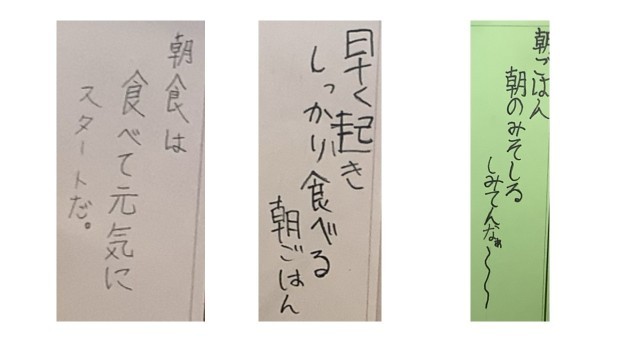 朝食は
食べて元気に
スタートだ。
早く起き
しっかり食べる
朝ごはん
朝ごはん
朝のみそしる
しみてんなぁ〜〜〜